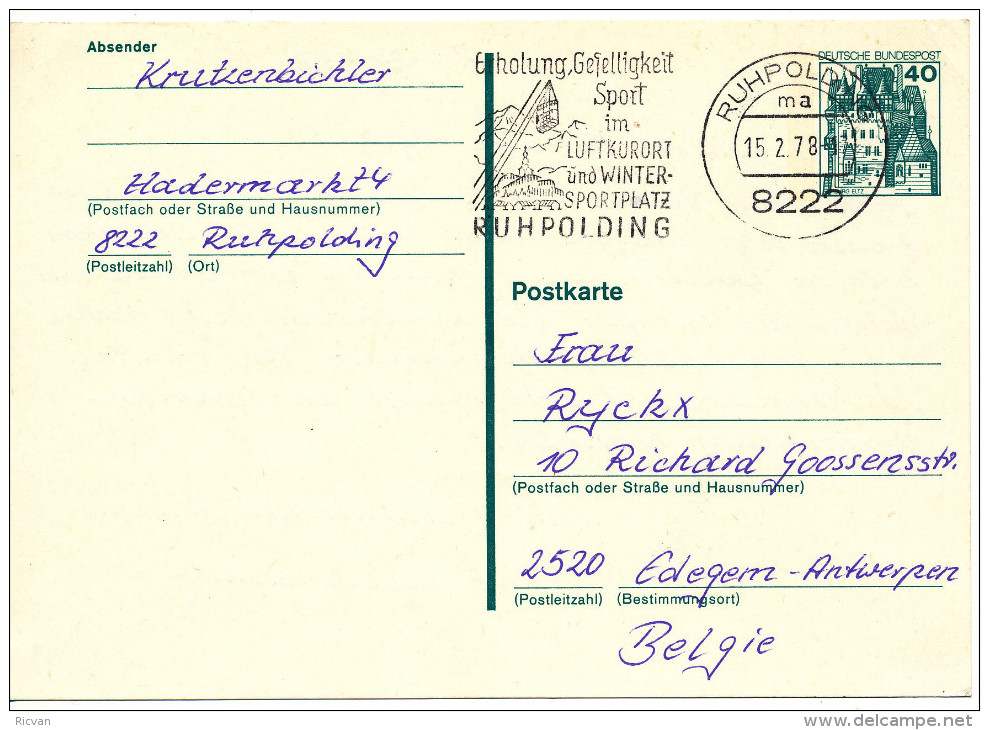 Absender
Krutzenbichler
Hadermarkt 4
(Postfach oder Straße und Hausnummer)
8222 Ruhpolding
(Postleitzahl) (Ort)
Erholung, Geselligkeit
Sport
im
LUFTKURORT
und WINTER-
SPORTPLATZ
RUHPOLDING
RUHPOLDING
ma
15.2.78
8222
DEUTSCHE BUNDESPOST
40
BURG ELTZ
Postkarte
Frau
Ryckx
10 Richard Goossensstr.
(Postfach oder Straße und Hausnummer)
2520 Edegem-Antwerpen
(Postleitzahl) (Bestimmungsort)
Belgie
Ricvan
delcampe.net